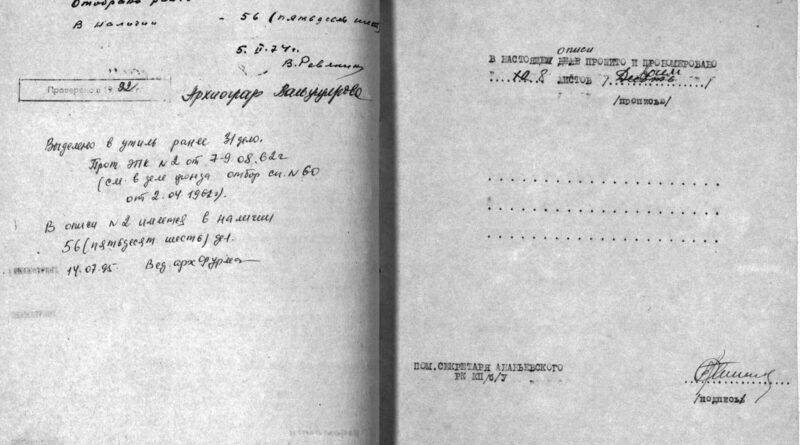 Отобрано ранее
В наличии - 56 (пятьдесят шесть)
5. II. 74 г.
Проверено в 1992 г.
Археограф
Выделено в утиль ранее 31 дело.
Прот. ЭПК №2 от 7-9.08.62 г
(см. в деле фонда отбор сп. №60
от 2.04 1962 г).
В описи №2 имеется в наличии
56 (пятьдесят шесть) дел.
14.07.95 Вед. арх Фурман
ОПИСИ
В НАСТОЯЩЕМ ДЕЛЕ ПРОШИТО И ПРОНОМЕРОВАНО
10 8 ЛИСТОВ / Десять /
/прописью/
ПОМ. СЕКРЕТАРЯ АНАНЬЕВСКОГО
РК КП/б/У
/подпись/